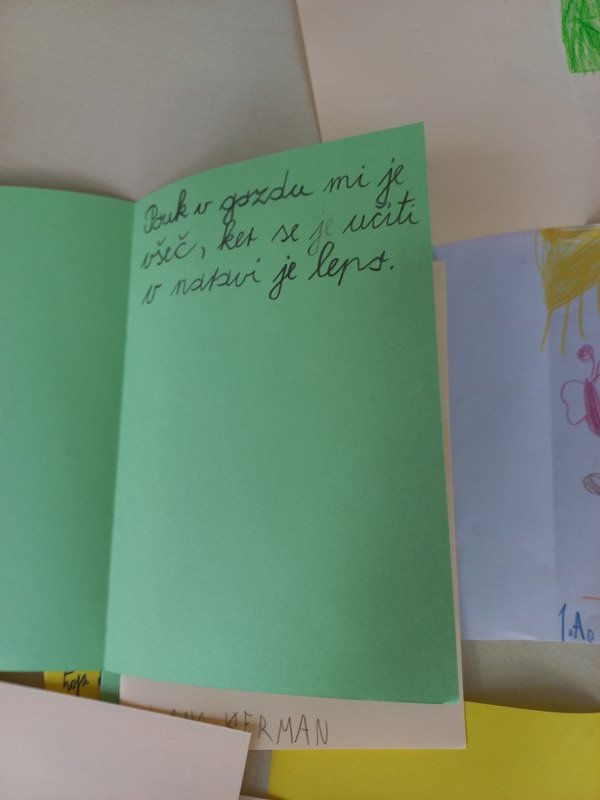 Pouk v gozdu mi je
všeč, ker se je učiti
v naravi je lepo.
1.A.
KERMAN